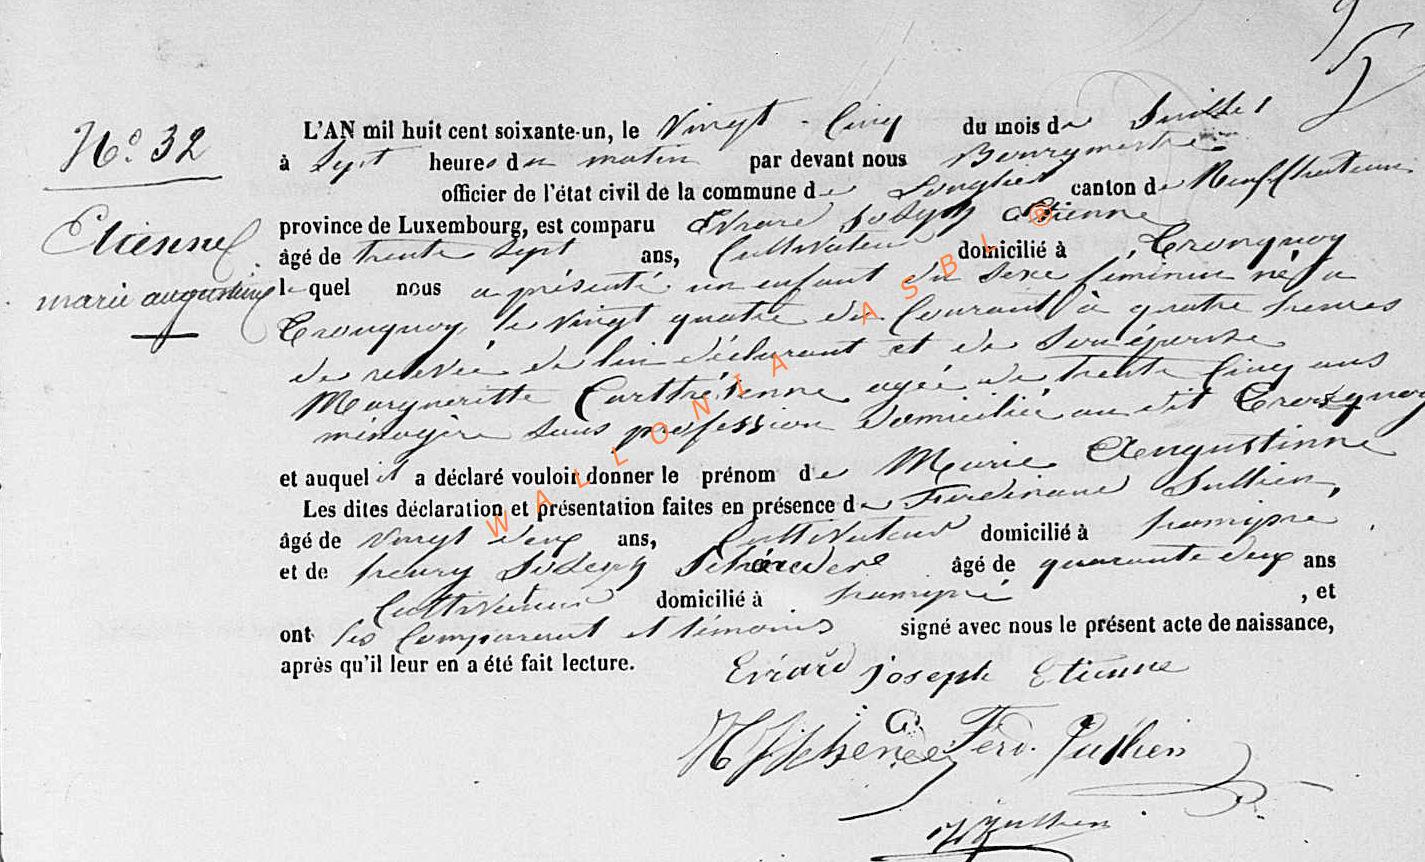 N° 32
Etienne
marie augustine
L'AN mil huit cent soixante-un, le Vingt-Cinq du mois de Juillet
à Sept heures du matin par devant nous Bourgmestre
officier de l'état civil de la commune de Longlier canton de Neufchateau
province de Luxembourg, est comparu Evrard Joseph Etienne
âgé de trente Sept ans, Cultivateur domicilié à Tronquoy
lequel nous a présenté un enfant du Sexe féminin né à
Tronquoy, le Vingt quatre du Courant à quatre heures
de relevée de lui déclarant et de Son épouse
Margueritte agée de trente Cinq ans
ménagère Sans profession domiciliée au dit Tronquoy
et auquel il a déclaré vouloir donner le prénom de Marie Augustinne
Les dites déclaration et présentation faites en présence de Ferdinand Jullien,
âgé de Vingt deux ans, Cultivateur domicilié à hamipré
et de henry Joseph âgé de quarante deux ans
Cultivateur domicilié à hamipré, et
ont les Comparant et témoins signé avec nous le présent acte de naissance,
après qu'il leur en a été fait lecture.
Evrard joseph Etienne
Ferd. Jullien
Jullien
WALLONIA ASBL ®